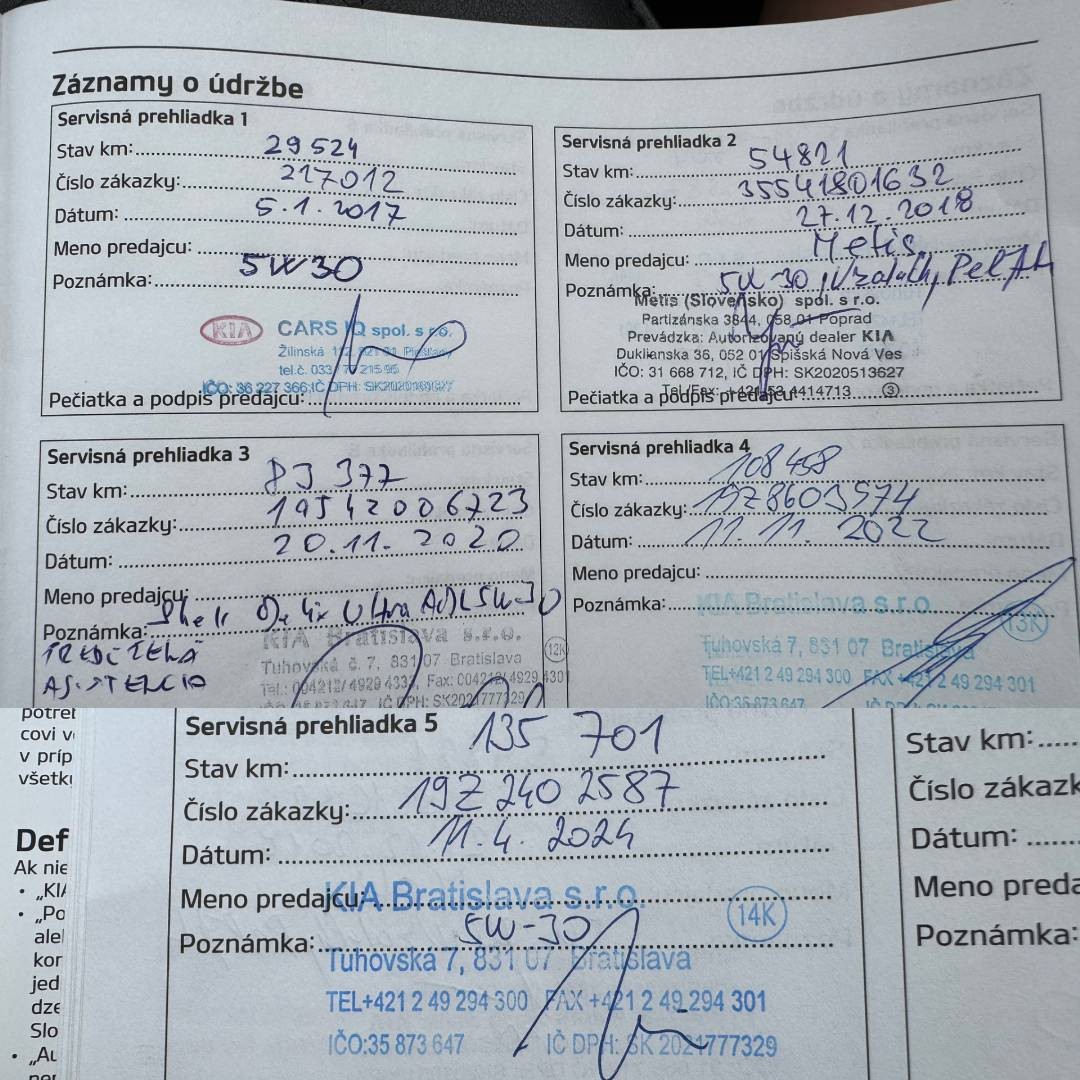 Záznamy o údržbe
Servisná prehliadka 1
Stav km: 29524
Číslo zákazky: 217012
Dátum: 5.1.2017
Meno predajcu:
Poznámka: 5W30
KIA CARS IQ spol. s r.o.
Žilinská
tel.č. 033/
IČO: 36 227 366, IČ DPH:
Pečiatka a podpis predajcu:
Servisná prehliadka 2
Stav km: 54821
Číslo zákazky: 35541801632
Dátum: 27.12.2018
Meno predajcu: Metis
Poznámka: 5W30, Vzduch, Peľ
Metis (Slovensko) spol. s r.o.
Partizánska 3844, 058 01 Poprad
Prevádzka: Autorizovaný dealer KIA
Duklianska 36, 052 01 Spišská Nová Ves
IČO: 31 668 712, IČ DPH: SK2020513627
Tel/Fax: +421 53 4414713 3
Pečiatka a podpis predajcu:
Servisná prehliadka 3
Stav km: 83 377
Číslo zákazky: 19542006723
Dátum: 20.11.2020
Meno predajcu:
Poznámka: Ultra 5W-30
KIA Bratislava s.r.o.
12K
Tuhovská č. 7, 831 07 Bratislava
Tel.: 004212/4929 4333, Fax: 004212/4929 4301
IČ DPH: SK2021777329
Servisná prehliadka 4
Stav km: 108 458
Číslo zákazky:
Dátum: 11.11.2022
Meno predajcu:
Poznámka:
KIA Bratislava s.r.o.
13K
Tuhovská 7, 831 07 Bratislava
TEL+421 2 49 294 300 FAX +421 2 49 294 301
IČO:35 873 647
Servisná prehliadka 5
Stav km: 135 701
Číslo zákazky: 19Z2402587
Dátum: 11.4.2024
Meno predajcu:
KIA Bratislava s.r.o.
14K
Poznámka: 5W-30
Tuhovská 7, 831 07 Bratislava
TEL+421 2 49 294 300 FAX +421 2 49 294 301
IČO:35 873 647 IČ DPH: SK 2021777329
covi
v príp
všetk
Def
Ak nie
• „KIA
jed
dze
Slo
Stav km:
Číslo zákazk
Dátum:
Meno preda
Poznámka: